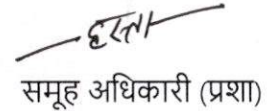 हस्ता
समूह अधिकारी (प्रशा)